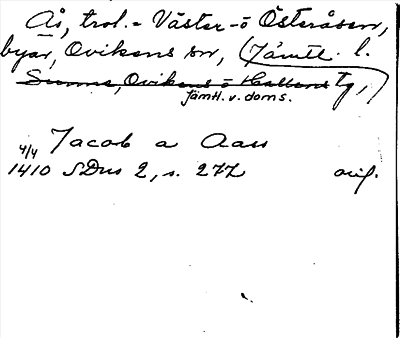 Ås, trol. = Väster- o Österåsen,
byar, Ovikens sn, (Jämtl. l.
Sunne, Ovikens o Hallens tg,)
jämtl. v. doms.
4/4 Jacob a Aass
1410 SDns 2, s. 277 orig.